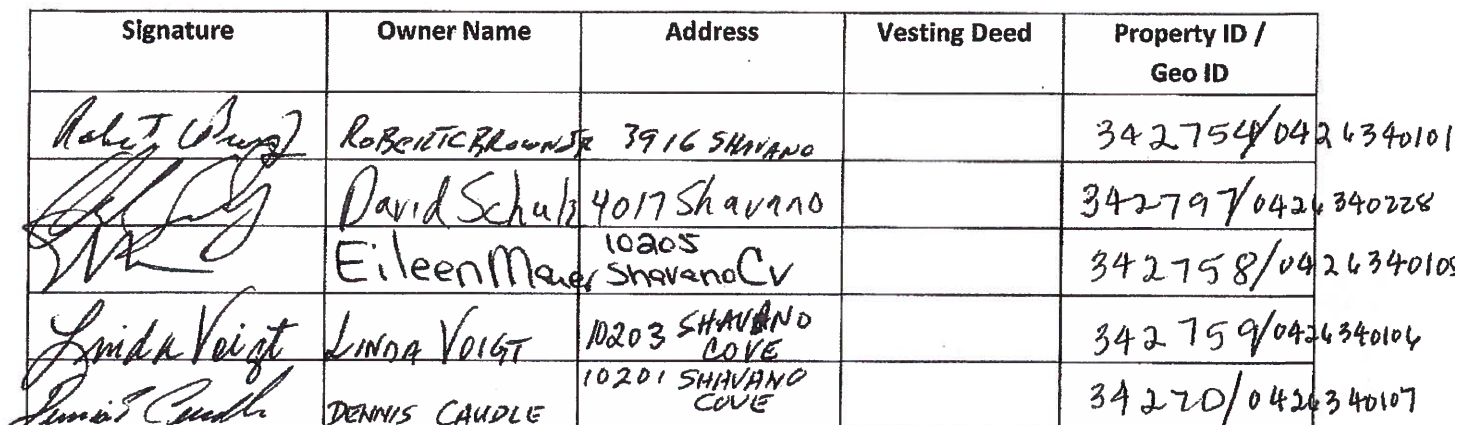 Signature Owner Name Address Vesting Deed Property ID /
Geo ID
ROBERT C BROWN JR 3916 SHAVANO 342754/0426340101
David Schulz 4017 Shavano 342797/0426340228
10205
Eileen Mauer Shavano Cv 342758/0426340105
Linda Voigt LINDA VOIGT 10203 SHAVANO 342759/0426340106
COVE
10201 SHAVANO
Dennis Caudle DENNIS CAUDLE COVE 34270/0426340107